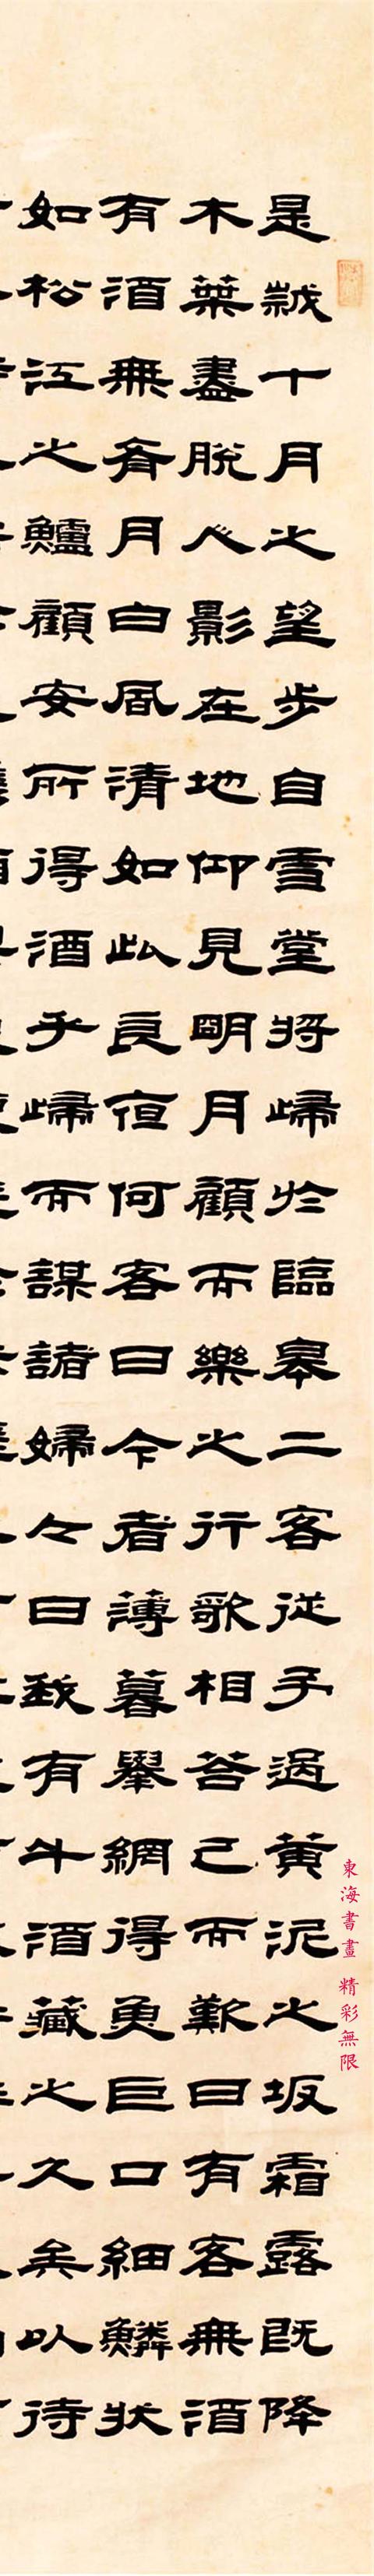 是歲十月之望步自雪堂將歸於臨皋二客從予過黃泥之坂霜露既降
木葉盡脫人影在地仰見明月顧而樂之行歌相答已而歎曰有客無酒
有酒無肴月白風清如此良夜何客曰今者薄暮舉網得魚巨口細鱗狀
如松江之鱸顧安所得酒乎歸而謀諸婦々曰我有斗酒藏之久矣以待
東海書畫 精彩無限